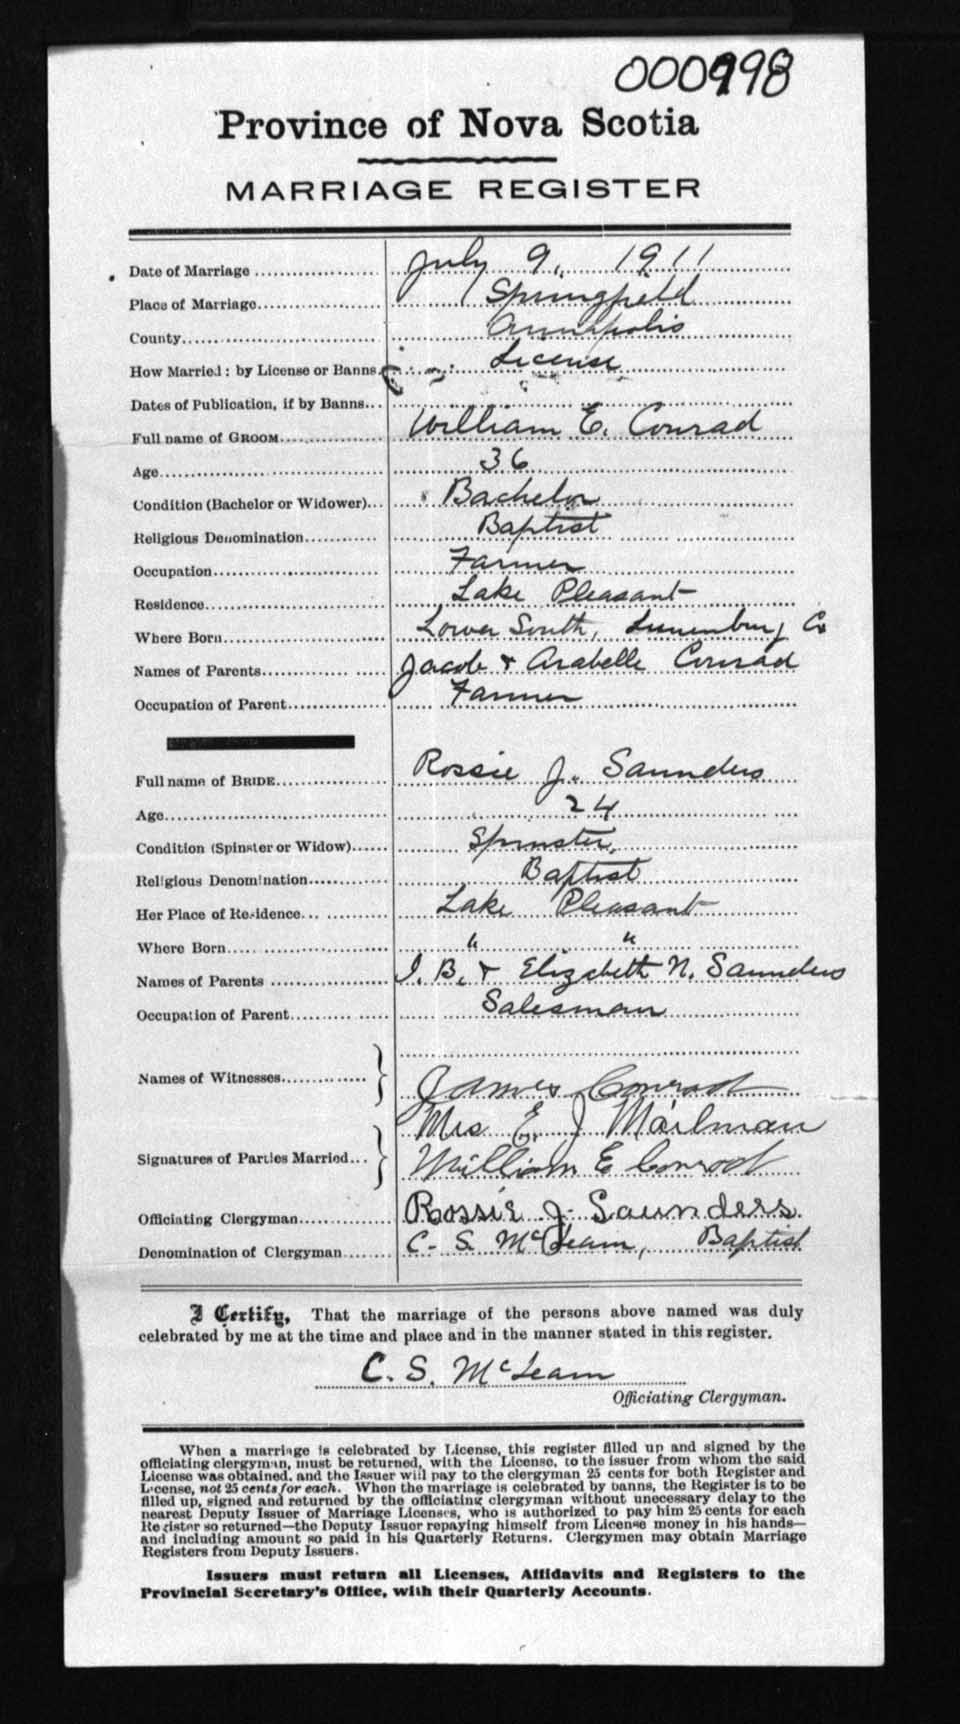 000998
Province of Nova Scotia
MARRIAGE REGISTER
Date of Marriage .................... July 9, 1911
Place of Marriage.................... Springfield
County.................... Annapolis
How Married: by License or Banns. License
Dates of Publication, if by Banns...
Full name of GROOM.................... William E. Conrad
Age.................... 36
Condition (Bachelor or Widower)... Bachelor
Religious Denomination............ Baptist
Occupation.................... Farmer
Residence.................... Lake Pleasant
Where Born.................... Lower South, Lunenburg Co
Names of Parents.................... Jacob & Arabelle Conrad
Occupation of Parent................ Farmer
Full name of BRIDE................. Rossie J. Saunders
Age.................... 24
Condition (Spinster or Widow)...... Spinster,
Religious Denomination............ Baptist
Her Place of Residence... ......... Lake Pleasant
Where Born.................... " "
Names of Parents .................. I. B. & Elizabeth N. Saunders
Occupation of Parent.......... ..... Salesman
Names of Witnesses.............. } James Conrod
Mrs E. J Mailman
Signatures of Parties Married... } William E Conrod
Officiating Clergyman............. Rossie J. Saunders.
Denomination of Clergyman....... C. S. McLearn, Baptist
I Certify, That the marriage of the persons above named was duly
celebrated by me at the time and place and in the manner stated in this register.
C. S. McLearn
Officiating Clergyman.
When a marriage is celebrated by License, this register filled up and signed by the
officiating clergyman, must be returned, with the License, to the issuer from whom the said
License was obtained, and the Issuer will pay to the clergyman 25 cents for both Register and
License, not 25 cents for each. When the marriage is celebrated by banns, the Register is to be
filled up, signed and returned by the officiating clergyman without unecessary delay to the
nearest Deputy Issuer of Marriage Licenses, who is authorized to pay him 25 cents for each
Register so returned—the Deputy Issuer repaying himself from License money in his hands—
and including amount so paid in his Quarterly Returns. Clergymen may obtain Marriage
Registers from Deputy Issuers.
Issuers must return all Licenses, Affidavits and Registers to the
Provincial Secretary's Office, with their Quarterly Accounts.